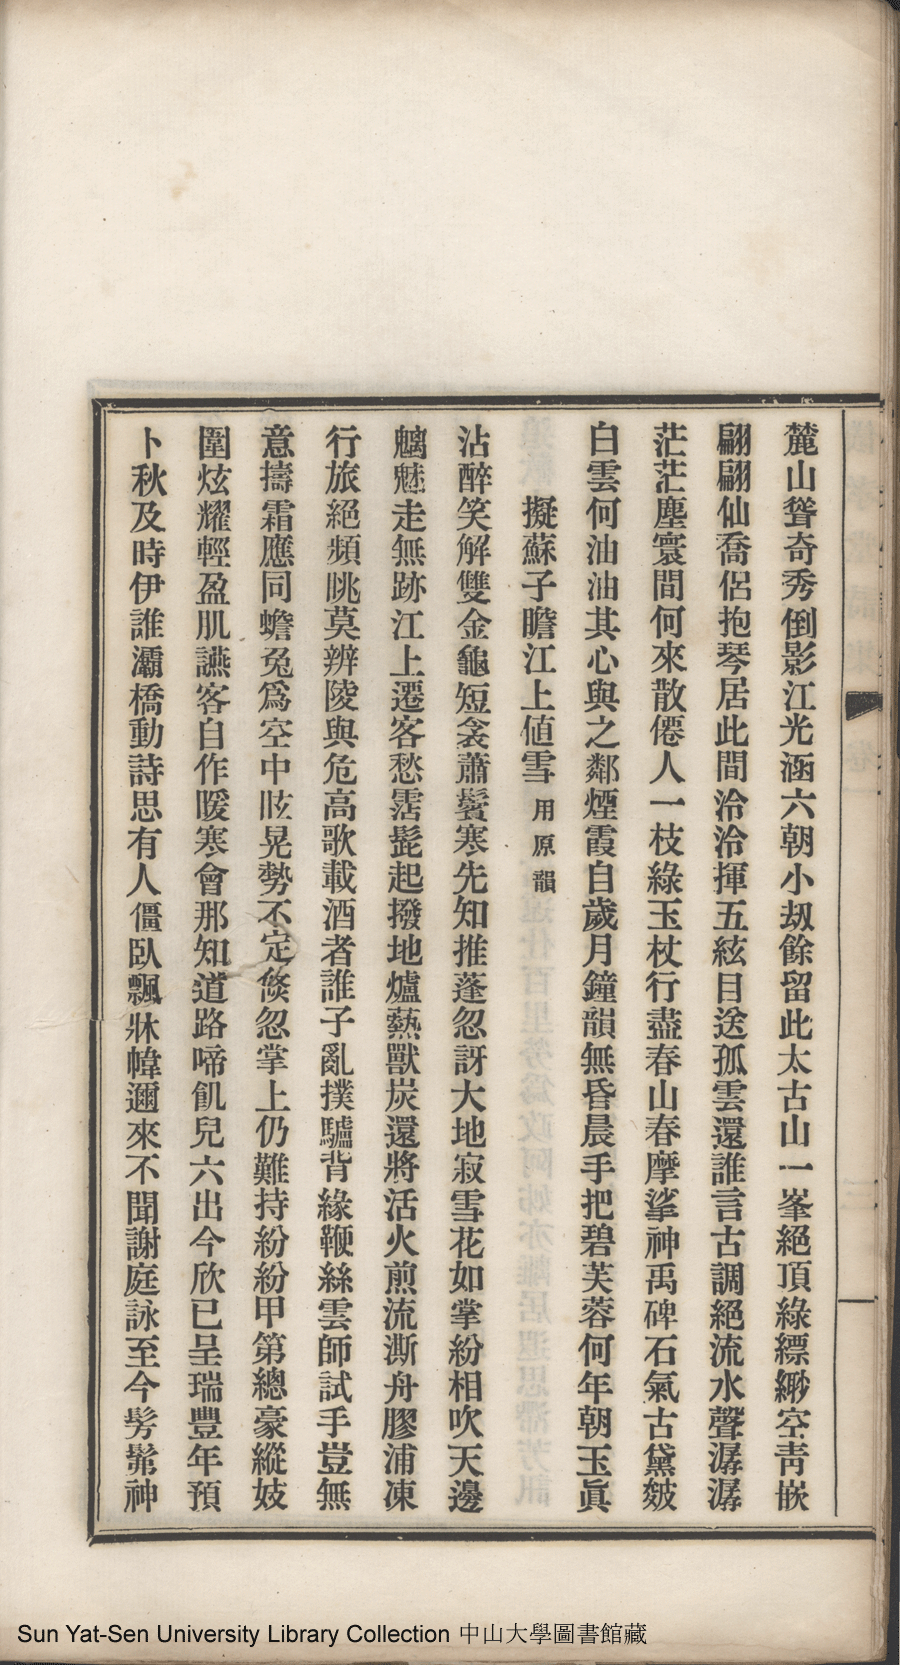 麓山聳奇秀倒影江光涵六朝小刼餘留此太古山一峯絕頂綠縹緲空靑嵌
翩翩仙喬侶抱琴居此間泠泠揮五絃目送孤雲還誰言古調絕流水聲潺潺
茫茫塵寰間何來散僊人一枝綠玉杖行盡春山春摩挲神禹碑石氣古黛皴
白雲何油油其心與之鄰煙霞自歲月鐘韻無昏晨手把碧芙蓉何年朝玉眞
擬蘇子瞻江上値雪用原韻
沾醉笑解雙金龜短衾蕭鬢寒先知推蓬忽訝大地寂雪花如掌紛相吹天邊
魑魅走無跡江上遷客愁霑髭起撥地爐爇獸炭還將活火煎流澌舟膠浦凍
行旅絕頻眺莫辨陵與危高歌載酒者誰子亂撲驢背緣鞭絲雲師試手豈無
意擣霜應同蟾兔爲空中眩晃勢不定倏忽掌上仍難持紛紛甲第總豪縱妓
圍炫耀輕盈肌讌客自作暖寒會那知道路啼飢兒六出今欣已呈瑞豐年預
卜秋及時伊誰灞橋動詩思有人僵臥飄牀幃邇來不聞謝庭詠至今髣髴神
Sun Yat-Sen University Library Collection 中山大學圖書館藏